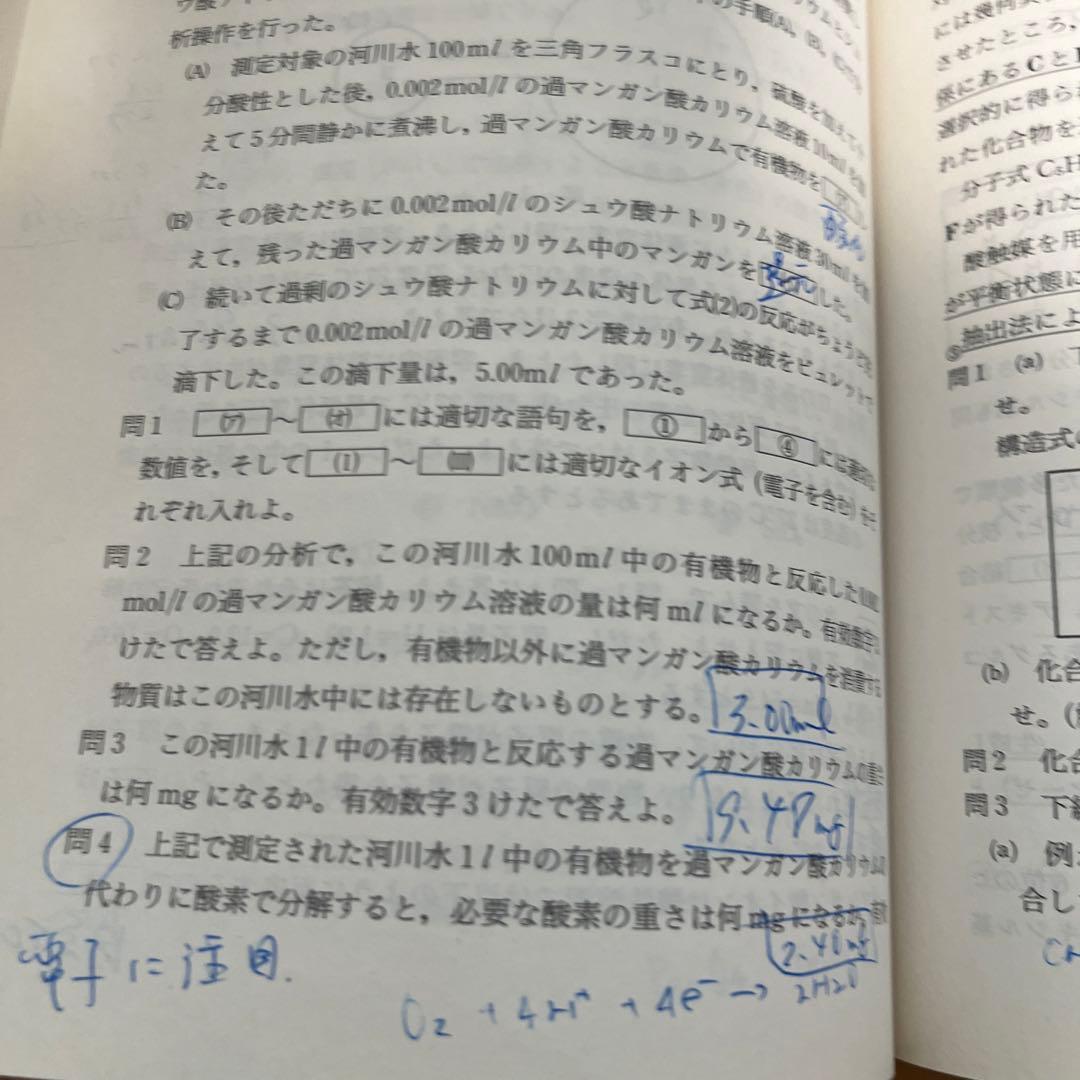 析操作を行った。
(A) 測定対象の河川水100mlを三角フラスコにとり，硫酸を加えて
分酸性とした後，0.002mol/lの過マンガン酸カリウム溶液10ml
えて5分間静かに煮沸し，過マンガン酸カリウムで有機物を
た。
(B) その後ただちに0.002mol/lのシュウ酸ナトリウム溶液30mlを
えて，残った過マンガン酸カリウム中のマンガンを 還元 した。
(C) 続いて過剰のシュウ酸ナトリウムに対して式(2)の反応がちょうど
了するまで0.002mol/lの過マンガン酸カリウム溶液をビュレットで
滴下した。この滴下量は，5.00mlであった。
問1 (ア)～(オ)には適切な語句を，①から④には
数値を，そして(i)～には適切なイオン式（電子を含む）を
れぞれ入れよ。
問2 上記の分析で，この河川水100ml中の有機物と反応した
mol/lの過マンガン酸カリウム溶液の量は何mlになるか。有効数字
けたで答えよ。ただし，有機物以外に過マンガン酸カリウムを消費する
物質はこの河川水中には存在しないものとする。 3.00ml
問3 この河川水1l中の有機物と反応する過マンガン酸カリウムの重さ
は何mgになるか。有効数字3けたで答えよ。 9.48mg
問4 上記で測定された河川水1l中の有機物を過マンガン酸カリウムの
代わりに酸素で分解すると，必要な酸素の重さは何mgになるか。
2.40mg
電子に注目.
O2 + 4H+ + 4e- → 2H2O
には幾何
させたところ，
係にあるCと
選択的に得ら
れた化合物を
分子式C5H
Fが得られた
酸触媒を用
が平衡状態に
抽出法によ
問1 (a)
せ。
構造式の
(b) 化合
せ。(
問2 化合
問3 下線
(a) 例
合し